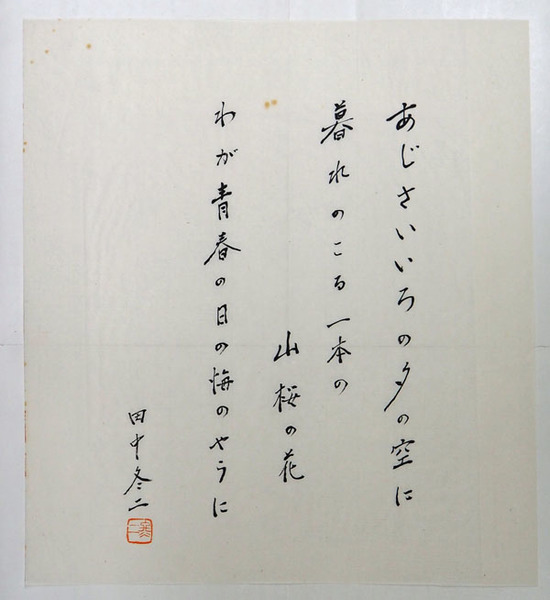 あじさいいろの夕の空に
暮れのこる一本の
山桜の花
わが青春の日の悔のやうに
田中冬二